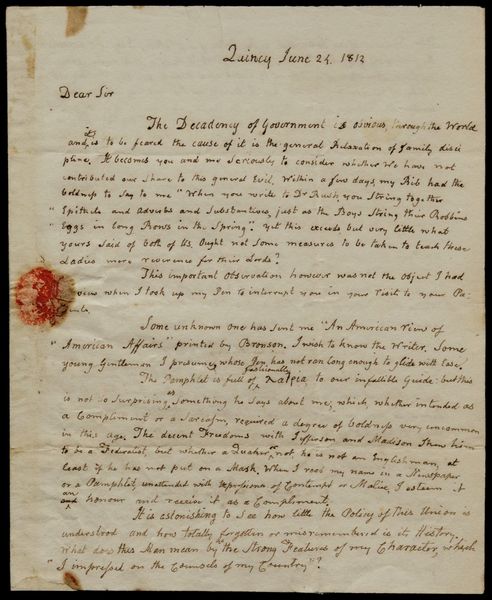 Quincy June 24. 1812
Dear Sir
The Decadency of Government is obvious, through the World
and it is to be feared the cause of it is the general Relaxation of family disci
pline. It becomes you and me Seriously to consider whether We have not
contributed our Share to this general Evil. Within a few days, my Rib had the
boldness to Say to me "When you write to Dr Rush, you String together
"Epithets and adverbs and Substantives, just as the Boys String their Robbins
"Eggs in long Rows in the Spring." yet this exceeds but very little what
yours Said of both of Us. Ought not Some measures to be taken to teach these
Ladies more reverence for their Lords?
This important Observation however was not the Object I had
in view when I took up my Pen to interrupt you in your Visit to your Pa-
tients.
Some unknown one has Sent me "An American View of
"American Affairs" printed by Bronson. I wish to know the Writer. Some
young Gentleman I presume, whose Pen has not ran long enough to glide with Ease.
fashionably
The Pamphlet is full of to our infallible Guide: but this
is not So Surprising as Something he Says about me; which, whether intended as
a Compliment or a Sarcasm, required a degree of boldness very uncommon
in this age. The decent Freedoms with Jefferson and Madison Shew him
to be a Federalist, but whether a Quaker or not, he is not an Englishman, at
least if he has not put on a Mask. When I read my name in a Newspaper
or a Pamphlet, unattended with Expressions of Contempt or Malice, I esteem it
an honour and receive it as a Compliment.
It is astonishing to See how little the Policy of this Union is
understood and how totally forgotten or misremembered is its History.
What does this Man mean by "the Strong Features of my Character, which
"I impressed on the Counsels of my Country"?